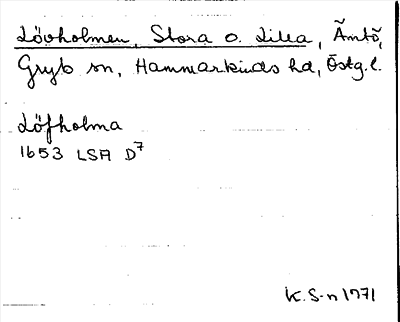 Lövholmen, Stora o. Lilla, Ämtö,
Gryts sn, Hammarkinds hd, Östg.l.
Löfholma
1653 LSA D7
K.S-n 1971